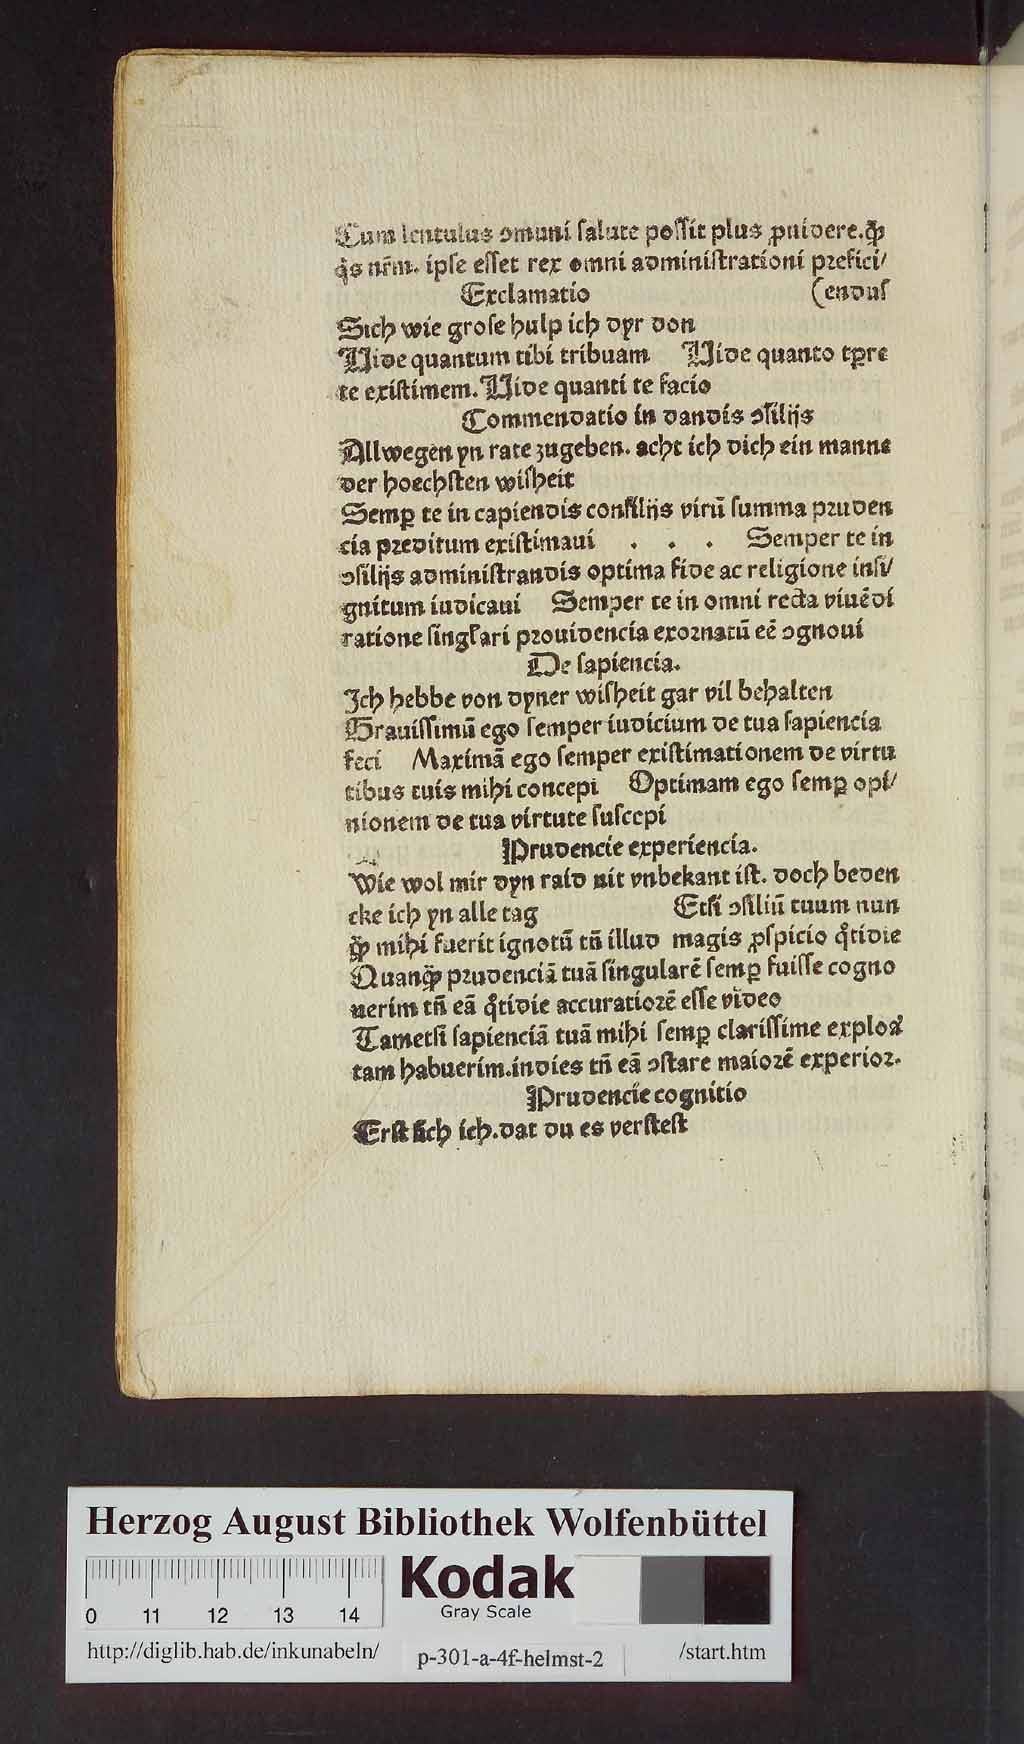 Cum lentulus ↄmuni salute possit plus ꝓuidere.ꝙ̄
q̇s nr̄m. ipse esset rex omni administrationi prefici/
Exclamatio (endus
Sich wie grose hulp ich dyr don
Vide quantum tibi tribuam Vide quanto tꝑre
te existimem. Vide quanti te facio
Commendatio in dandis ↄsilijs
Allwegen yn rate zugeben. acht ich dich ein manne
der hoechsten wisheit
Semꝑ te in capiendis consilijs virū summa pruden
cia preditum existimaui . . . Semper te in
ↄsilijs administrandis optima fide ac religione insi/
gnitum iudicaui Semper te in omni recta viuēdi
ratione singl'ari prouidencia exornatū eē ↄgnoui
De sapiencia.
Ich hebbe von dyner wisheit gar vil behalten
Grauissimū ego semper iudicium de tua sapiencia
feci Maximā ego semper existimationem de virtu
tibus tuis mihi concepi Optimam ego semꝑ opi/
nionem de tua virtute suscepi
Prudencie experiencia.
Wie wol mir dyn raid nit vnbekant ist. doch beden
cke ich yn alle tag Etsi ↄsiliū tuum nun
ꝙ̄ mihi fuerit ignotū tn̄ illud magis ꝓspicio q̊tidie
Quanꝙ̄ prudenciā tuā singularē semꝑ fuisse cogno
uerim tn̄ eā q̊tidie accuratiorē esse video
Tametsi sapienciā tuā mihi semꝑ clarissime explora
tam habuerim.indies tn̄ eā ↄstare maiorē experior.
Prudencie cognitio
Erst sich ich.dat du es verstest
Herzog August Bibliothek Wolfenbüttel
0 11 12 13 14
Kodak
Gray Scale
http://diglib.hab.de/inkunabeln/ p-301-a-4f-helmst-2 /start.htm